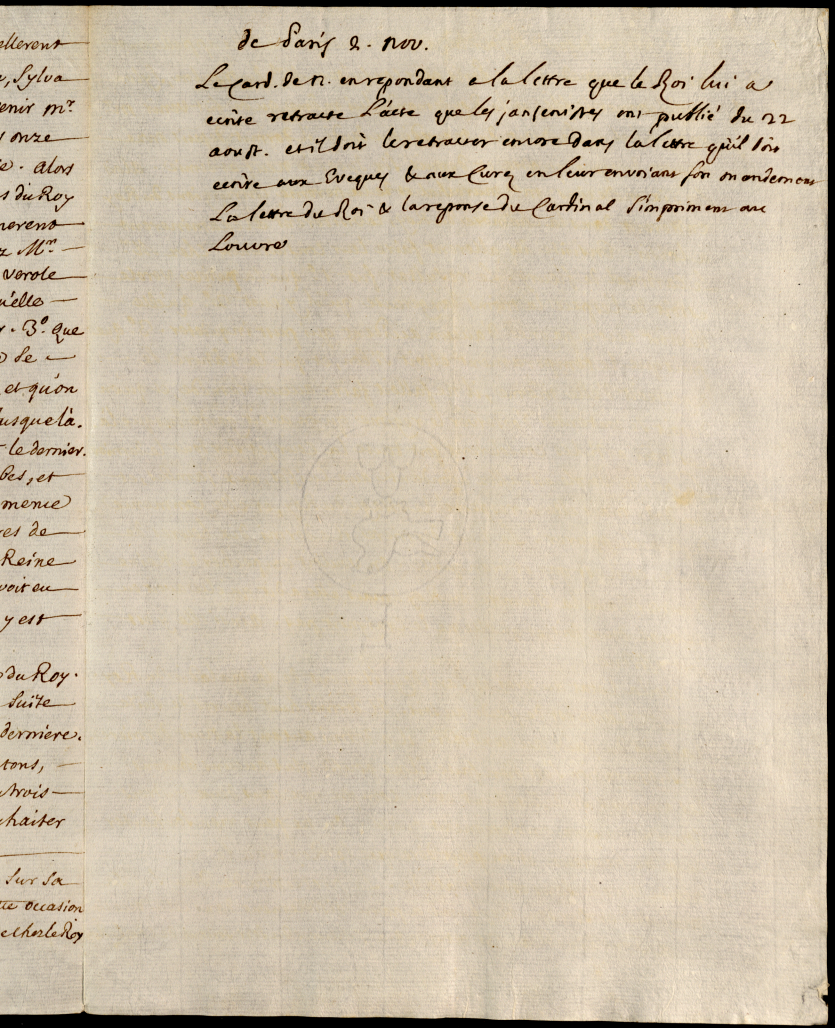 ellerent
, Sylva
enir mr.
onze
e. alors
s du Roy
nerent
z Mr.
verole
u'elle
3o. que
de
et qu'on
usque là.
le dernier.
bes, et
meme
res de
Reine
voit eu
y est
du Roy.
suite
derniere.
tons,
trois
haiter
sur sa
occasion
chez le Roy
de Paris 2. nov.
Le Card. de N. en repondant a la lettre que le Roi lui a
ecrite retracte l'acte que les jansenistes ont publié du 22
aoust. et il doit le retracter encore dans la lettre qu'il doit
ecrire aux Eveques & aux Curez en leur envoiant son mandement
La lettre du Roi & la reponse du Cardinal s'impriment au
Louvre